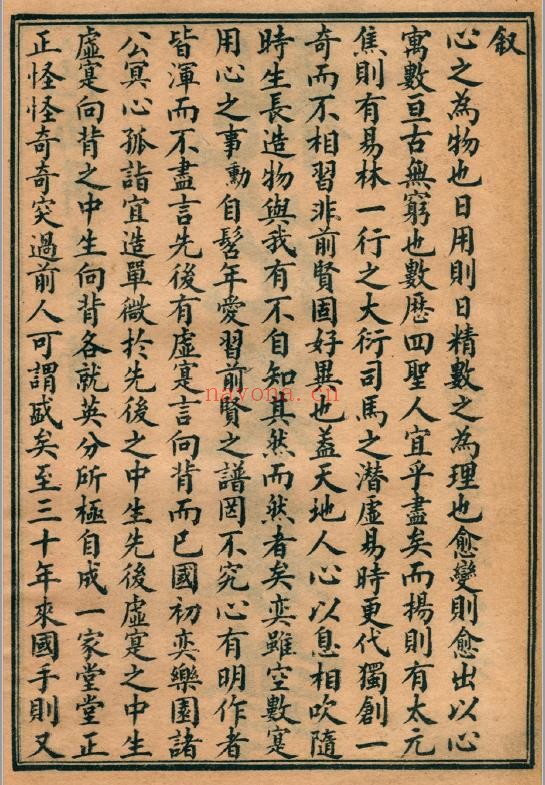 叙
心之為物也日用則日精數之為理也愈變則愈出以心
寓數亘古無窮也數歷四聖人宜乎盡矣而揚則有太元
焦則有易林一行之大衍司馬之潛虛易時更代獨創一
奇而不相習非前賢固好異也蓋天地人心以息相吹隨
時生長造物與我有不自知其然而然者矣奕雖空數寔
用心之事勳自髫年愛習前賢之譜罔不究心有明作者
皆渾而不盡言先後有虛寔言向背而已國初奕樂園諸
公冥心孤詣宜造單微於先後之中生先後虛寔之中生
虛寔向背之中生向背各就英分所極自成一家堂堂正
正怪怪奇奇突過前人可謂盛矣至三十年來國手則又
nayona.cn